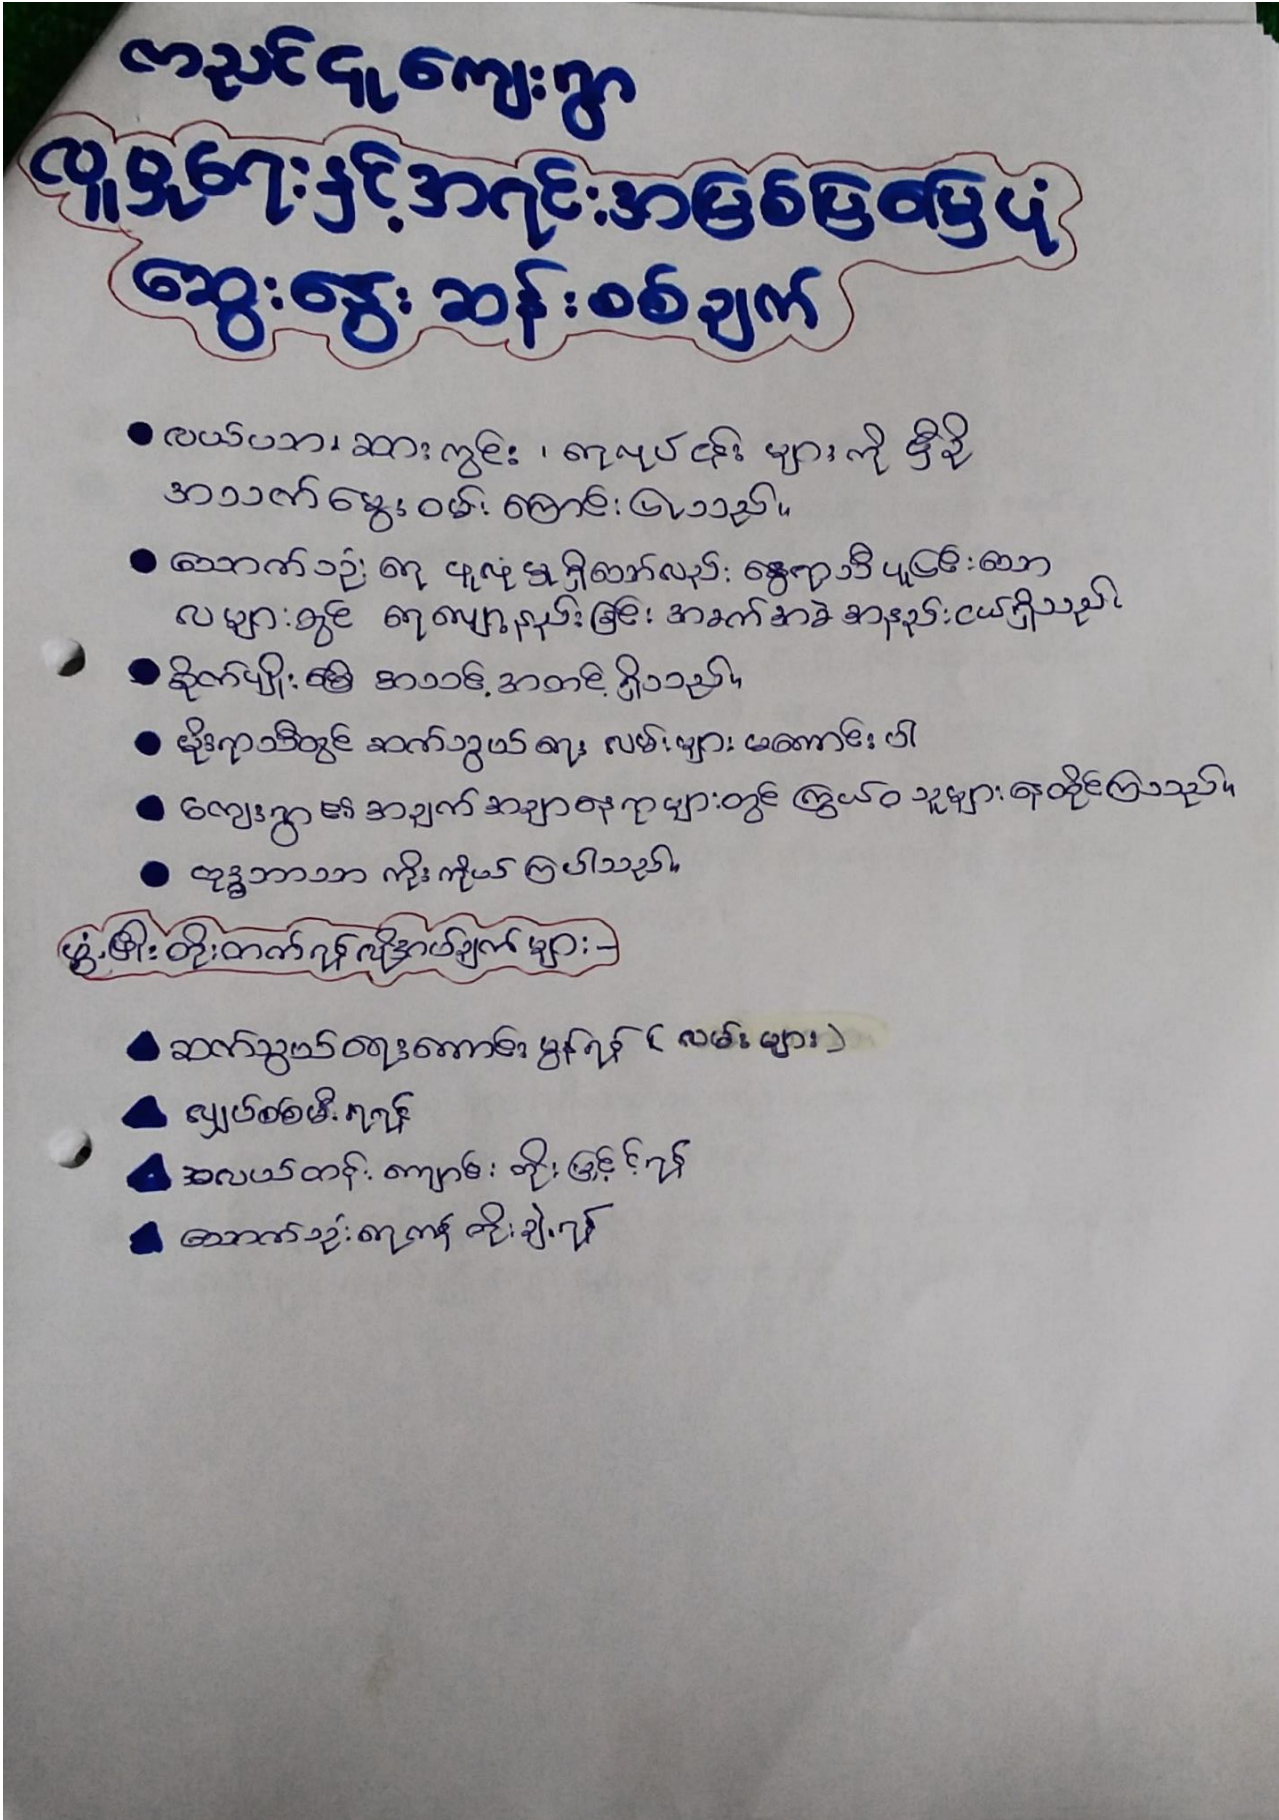 ကညင်ငူကျေးရွာ
လူမှုရေးနှင့်အရင်းအမြစ်ပြမြေပုံ
ဆွေးနွေးဆန်းစစ်ချက်
လယ်ယာ၊ ဆားကွင်း၊ ရေလုပ်ငန်းများကို မှီခို
အသက်မွေးဝမ်းကြောင်းပြုသည်။
သောက်သုံးရေ ဖူလုံမှုရှိသော်လည်း နွေရာသီပူပြင်းသော
လများတွင် ရေလျော့နည်းခြင်း အခက်အခဲအနည်းငယ်ရှိသည်။
စိုက်ပျိုးမြေ အသင့်အတင့်ရှိသည်။
မိုးရာသီတွင် ဆက်သွယ်ရေးလမ်းများမကောင်းပါ
ကျေးရွာ၏အချက်အချာနေရာများတွင် ကြွယ်ဝသူများနေထိုင်ကြသည်။
ဗုဒ္ဓဘာသာ ကိုးကွယ်ကြပါသည်။
ဖွံ့ဖြိုးတိုးတက်ရန်လိုအပ်ချက်များ:–
ဆက်သွယ်ရေးကောင်းမွန်ရန် (လမ်းများ)
လျှပ်စစ်မီးရရန်
အလယ်တန်းကျောင်း တိုးမြှင့်ရန်
သောက်သုံးရေကန် တိုးချဲ့ရန်